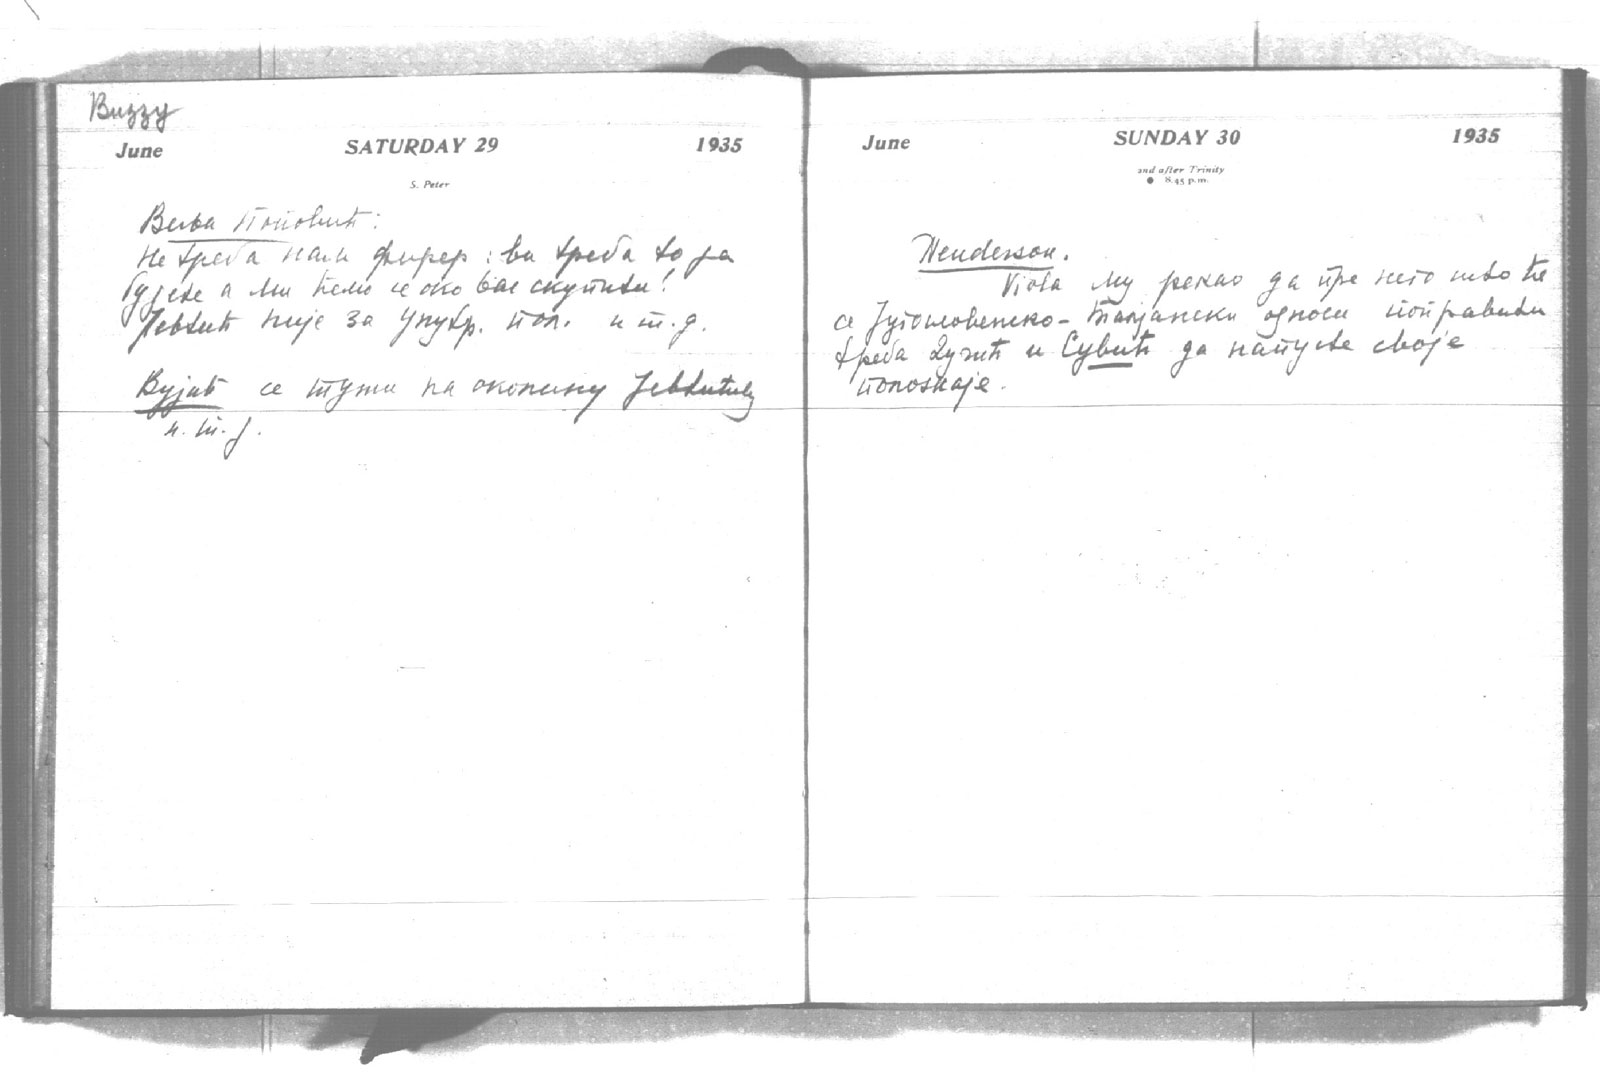 Buzzy
June SATURDAY 29 1935
S. Peter
Веља Поповић:
Не треба нам фирер: ви треба то да
будете а ми ћемо се око вас скупити!
Јевтић није за унутр. пол. и т.д.
Вујић се тужи на околину Јевтићеву
и.т.д.
June SUNDAY 30 1935
2nd after Trinity
● 8.45 p.m.
Henderson.
Viola му рекао да пре него што ће
се Југословенско-талјански односи поправити
треба Дучић и Субић да напусте своје
положаје.